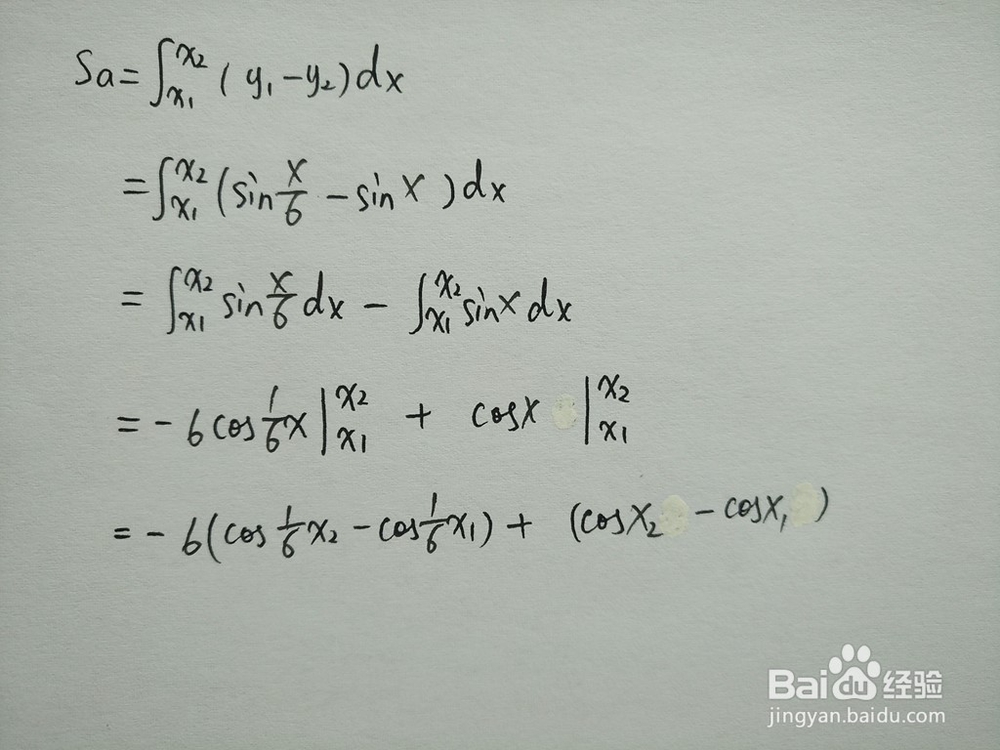 Sa=∫_{x₁}^{x₂} (y₁-y₂)dx
=∫_{x₁}^{x₂} (sin x/6 - sin x)dx
= ∫_{x₁}^{x₂} sin x/6 dx - ∫_{x₁}^{x₂} sinx dx
= -6cos 1/6 x |_{x₁}^{x₂} + cosx |_{x₁}^{x₂}
= -6(cos 1/6 x₂ - cos 1/6 x₁) + (cosx₂ - cosx₁)
Baidu经验
jingyan.baidu.com